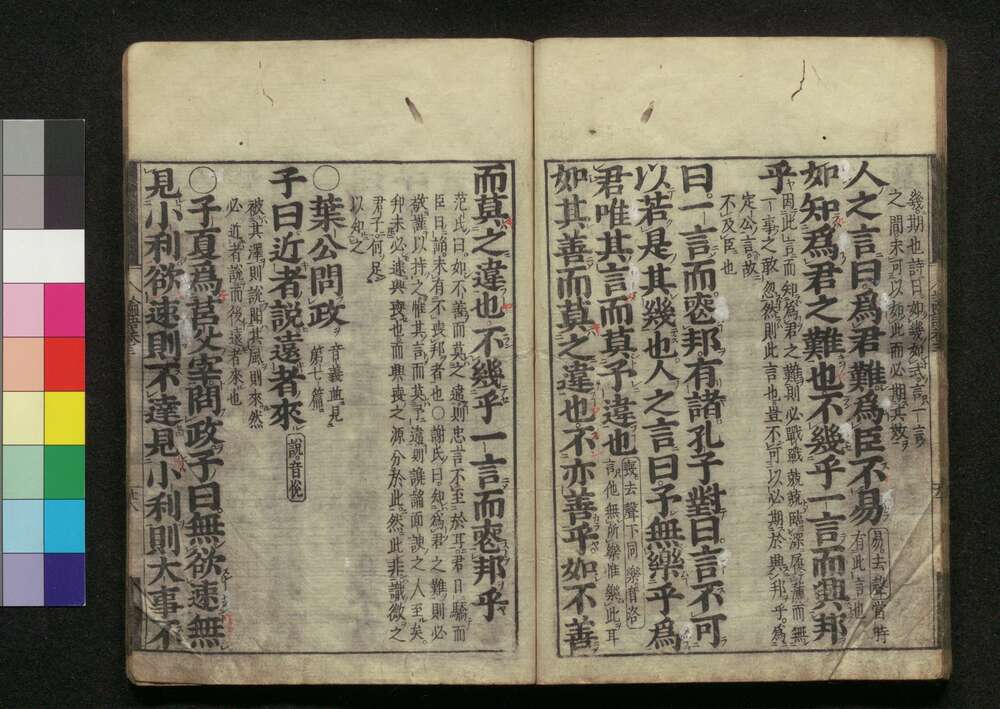 幾期也詩曰如幾如式言一言
之間未可以如此而必期其效
人之言曰爲君難爲臣不易
易去聲當時
有此言也
如知爲君之難也不幾乎一言而興邦
乎
因此言而知爲君之難則必戰戰兢兢臨深履薄而無
一事之敢忽然則此言也豈不可以必期於興邦乎爲
定公言故
不及臣也
曰一言而喪邦有諸孔子對曰言不可
以若是其幾也人之言曰予無樂乎爲
君唯其言而莫予違也
喪去聲下同樂音洛
言他無所樂惟樂此耳
如其善而莫之違也不亦善乎如不善
而莫之違也不幾乎一言而喪邦乎
范氏曰如不善而莫之違則忠言不至於耳君日驕而
臣日諂未有不喪邦者也○謝氏曰知爲君之難則必
敬謹以持之惟其言而莫予違則讒諂面諛之人至矣
邦未必遽興喪也而興喪之源分於此然此非識微之
君子何足
以知之
○葉公問政
音義並見
第七篇
子曰近者說遠者來
說音悅
被其澤則說聞其風則來然
必近者說而後遠者來也
○子夏爲莒父宰問政子曰無欲速無
見小利欲速則不達見小利則大事不